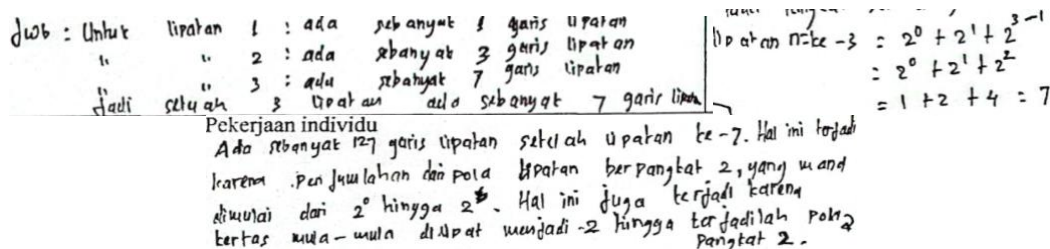 Jwb : Untuk lipatan 1 : ada sebanyak 1 garis lipatan
" " 2 : ada sebanyak 3 garis lipatan
" " 3 : ada sebanyak 7 garis lipatan
Jadi setelah 3 lipatan ada sebanyak 7 garis lipatan
lipatan n=ke-3 = 2⁰ + 2¹ + 2³⁻¹
= 2⁰ + 2¹ + 2²
= 1 + 2 + 4 = 7
Pekerjaan individu
Ada sebanyak 127 garis lipatan setelah lipatan ke-7. Hal ini terjadi
karena penjumlahan dari pola lipatan berpangkat 2, yang mana
dimulai dari 2⁰ hingga 2⁶. Hal ini juga terjadi karena
kertas mula-mula dilipat menjadi -2 hingga terjadilah pola
pangkat 2.